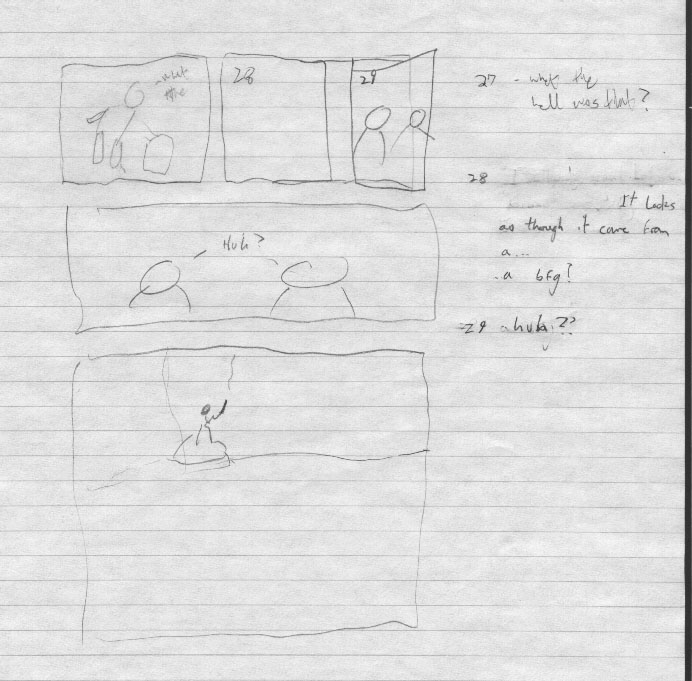 what
the
28
29
Huh?
27 - what the
hell was that?
28
It looks
as though it came from
a...
a bfg?
29 a huh??